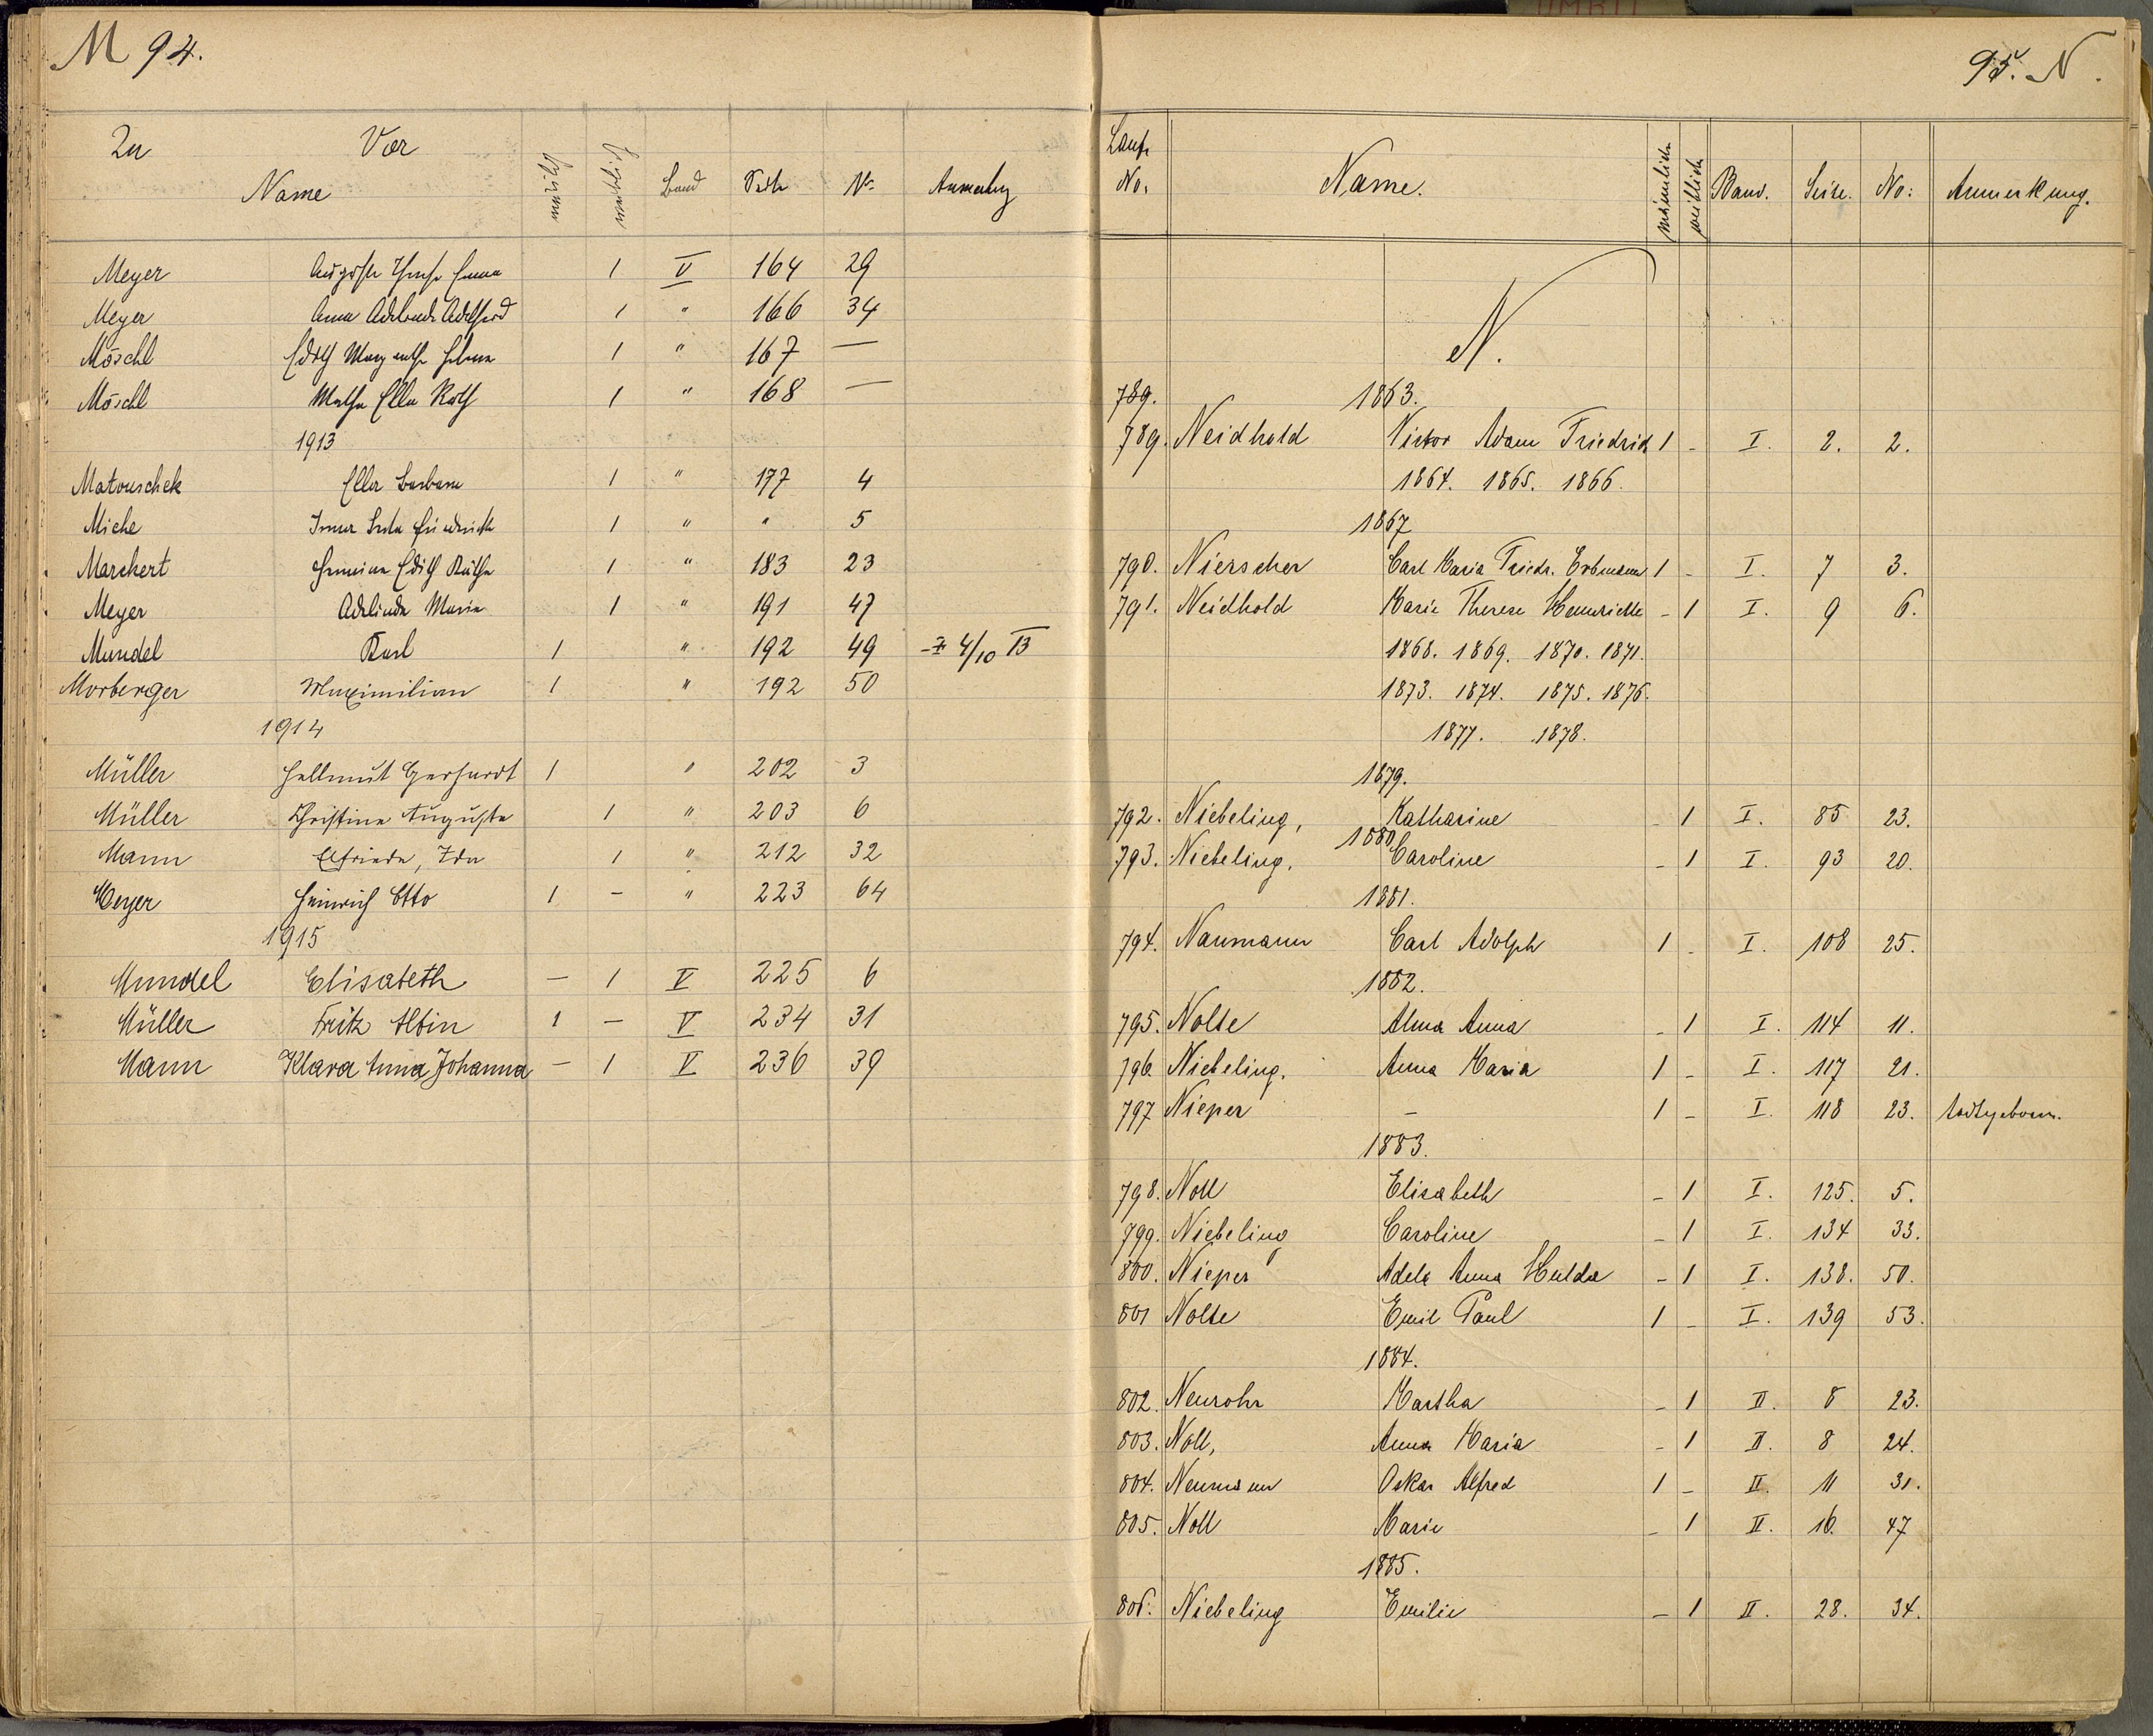 M 94.
Zu Vor
Name männlich weiblich Band Seite No. Anmerkung
Meyer Auguste Emma 1 V 164 29
Meyer Anna Adelheid 1 " 166 34
Möschl Edith Margarethe Helene 1 " 167 —
Möschl Martha Ella Ruth 1 " 168 —
1913
Matouschek Ella Barbara 1 " 177 4
Miche Irma 1 " " 5
Marchert Edith Käthe 1 " 183 23
Meyer Adelinde Marie 1 " 191 47
Mundel Karl 1 " 192 49 4/10 13
Morberger Maximilian 1 " 192 50
1914
Müller Hellmut Gerhardt 1 " 202 3
Müller Christine Auguste 1 " 203 6
Mann Elfriede, Ida 1 " 212 32
Meyer Heinrich Otto 1 – " 223 64
1915
Mundel Elisabeth – 1 V 225 6
Müller Fritz Albin 1 – V 234 31
Mann Klara Anna Johanna – 1 V 236 39
95. N.
Laufe No. Name. männlich weiblich Band. Seite. No: Anmerkung.
N.
789. 1863.
789. Neidhold Victor Adam Friedrich 1 – I. 2. 2.
1864. 1865. 1866.
1867
790. Nierscher Carl Maria Friedr. Erdmann 1 – I. 7 3.
791. Neidhold Marie Therese Henriette – 1 I. 9 6.
1868. 1869. 1870. 1871.
1873. 1874. 1875. 1876.
1877. 1878.
1879.
792. Niebeling, Katharine – 1 I. 85 23.
1880
793. Niebeling. Caroline – 1 I. 93 20.
1881.
794. Naumann Carl Adolph 1 – I. 108 25.
1882.
795. Nolte Alma Anna – 1 I. 114 11.
796. Niebeling. Anna Maria 1 – I. 117 21.
797 Nieper – 1 – I. 118 23. todtgeboren.
1883.
798. Noll Elisabeth – 1 I. 125. 5.
799. Niebeling Caroline – 1 I. 134 33.
800. Nieper Adele Anna Hulda – 1 I. 138. 50.
801 Nolte Emil Paul 1 – I. 139 53.
1884.
802. Neurohr Martha – 1 II. 8 23.
803. Noll, Anna Maria – 1 II. 8 24.
804. Neumann Oskar Alfred 1 – II. 11 31.
805. Noll Marie – 1 II. 16. 47
1885.
806. Niebeling Emilie – 1 II. 28. 34.